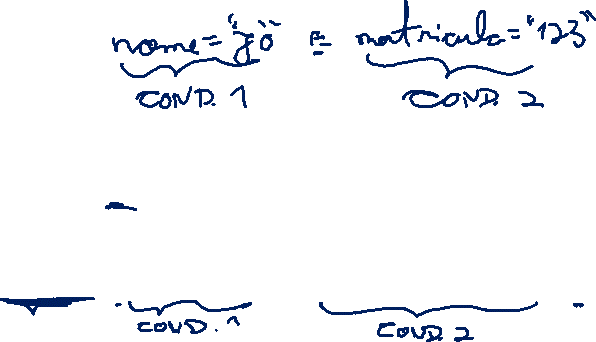 nome="Jô" E matricula="123"
COND. 1 COND. 2
COND. 1 COND. 2